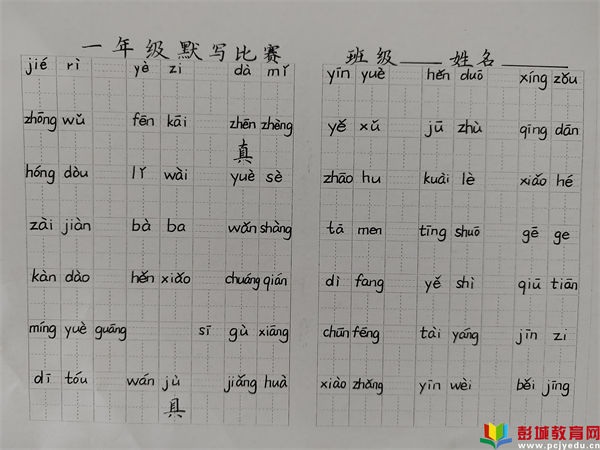 一年级默写比赛 班级 姓名
jié rì yè zi dà mǐ
zhōng wǔ fēn kāi zhēn zhèng
真
hóng dòu lǐ wài yuè sè
zài jiàn bà ba wǎn shàng
kàn dào hěn xiǎo chuáng qián
míng yuè guāng sī gù xiāng
dī tóu wán jù jiǎng huà
真
yīn yuè hěn duō xíng zǒu
yě xǔ jū zhù qīng dān
zhāo hu kuài lè xiǎo hé
tā men tīng shuō gē ge
dì fang yě shì qiū tiān
chūn fēng tài yáng jīn zi
xiào zhǎng yīn wèi běi jīng
彭城教育网
www.pcjyedu.cn